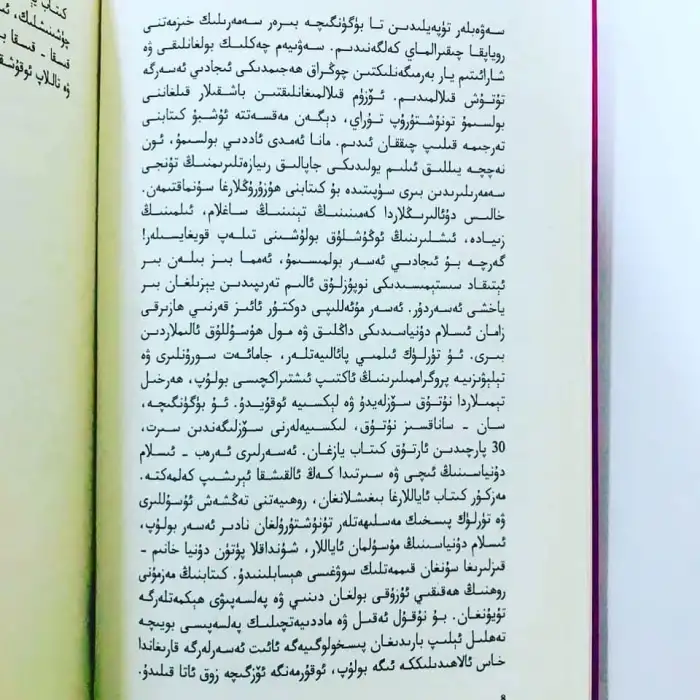 سەۋەبلەر تۈپەيلىدىن تا بۈگۈنگىچە بىرەر سەمەرىلىك خىزمەتنى
روياپقا چىقىرالماي كەلگەنىدىم. سەۋىيەم چەكلىك بولغانلىقى ۋە
شارائىتىم يار بەرمىگەنلىكتىن چوڭراق ھەجىمدىكى ئىجادىي ئەسەرگە
تۇتۇش قىلالمىدىم. ئۆزۈم قىلالمىغانلىقتىن باشقىلار قىلغاننى
بولسىمۇ تونۇشتۇرۇپ تۇراي، دېگەن مەقسەتتە ئۇشبۇ كىتابنى
تەرجىمە قىلىپ چىققان ئىدىم. مانا ئەمدى ئاددىي بولسىمۇ، ئون
نەچچە يىللىق ئىلىم يولىدىكى جاپالىق رىيازەتلىرىمنىڭ تۇنجى
سەمەرىلىرىدىن بىرى سۈپىتىدە بۇ كىتابنى ھۇزۇرۇڭلارغا سۇنماقتىمەن.
خالىس دۇئالىرىڭلاردا كەمىنىنىڭ تېنىنىڭ ساغلام، ئىلمىنىڭ
زىيادە، ئىشلىرىنىڭ ئوڭۇشلۇق بولۇشىنى تىلەپ قويغايسىلەر!
گەرچە بۇ ئىجادىي ئەسەر بولمىسىمۇ، ئەمما بىز بىلەن بىر
ئېتىقاد سىستېمىسىدىكى نوپۇزلۇق ئالىم تەرىپىدىن يېزىلغان بىر
ياخشى ئەسەردۇر. ئەسەر مۇئەللىپى دوكتۇر ئائىز قەرنىي ھازىرقى
زامان ئىسلام دۇنياسىدىكى داڭلىق ۋە مول ھوسۇللۇق ئالىملاردىن
بىرى. ئۇ تۈرلۈك ئىلمىي پائالىيەتلەر، جامائەت سورۇنلىرى ۋە
تېلېۋىزىيە پروگراممىلىرىنىڭ ئاكتىپ ئىشتىراكچىسى بولۇپ، ھەرخىل
تېمىلاردا نۇتۇق سۆزلەيدۇ ۋە لېكسىيە ئوقۇيدۇ. ئۇ بۈگۈنگىچە،
سان - ساناقسىز نۇتۇق، لېكسىيەلەرنى سۆزلىگەندىن سىرت،
30 پارچىدىن ئارتۇق كىتاب يازغان. ئەسەرلىرى ئەرەب - ئىسلام
دۇنياسىنىڭ ئىچى ۋە سىرتىدا كەڭ ئالقىشقا ئېرىشىپ كەلمەكتە.
مەزكۇر كىتاب ئاياللارغا بېغىشلانغان، روھىيەتنى تەڭشەش ئۇسۇللىرى
ۋە تۈرلۈك پىسخىك مەسلىھەتلەر تۇنۇشتۇرۇلغان نادىر ئەسەر بولۇپ،
ئىسلام دۇنياسىنىڭ مۇسۇلمان ئاياللار، شۇنداقلا پۈتۈن دۇنيا خانىم -
قىزلىرىغا سۇنغان قىممەتلىك سوۋغىسى ھېسابلىنىدۇ. كىتابنىڭ مەزمۇنى
روھنىڭ ھەقىقىي ئوزۇقى بولغان دىنىي ۋە پەلسەپىۋى ھېكمەتلەرگە
تويۇنغان. بۇ نۇقۇل ئەقىل ۋە ماددىيەتچىلىك پەلسەپىسى بويىچە
تەھلىل ئېلىپ بارىدىغان پىسخولوگىيەگە ئائىت ئەسەرلەرگە قارىغاندا
خاس ئالاھىدىلىككە ئىگە بولۇپ، ئوقۇرمەنگە ئۆزگىچە زوق ئاتا قىلىدۇ.
8